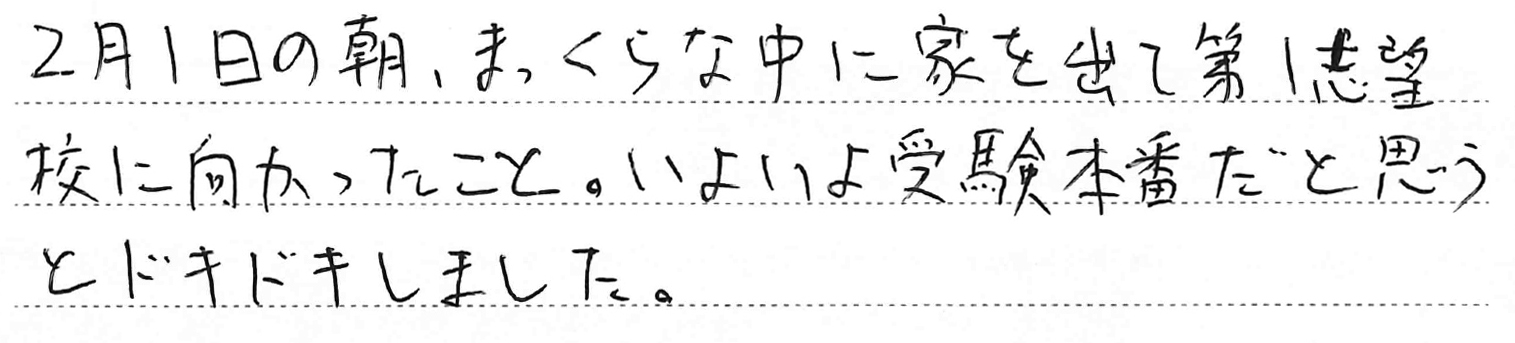 2月1日の朝、まっくらな中に家を出て第1志望
校に向かったこと。いよいよ受験本番だと思う
とドキドキしました。